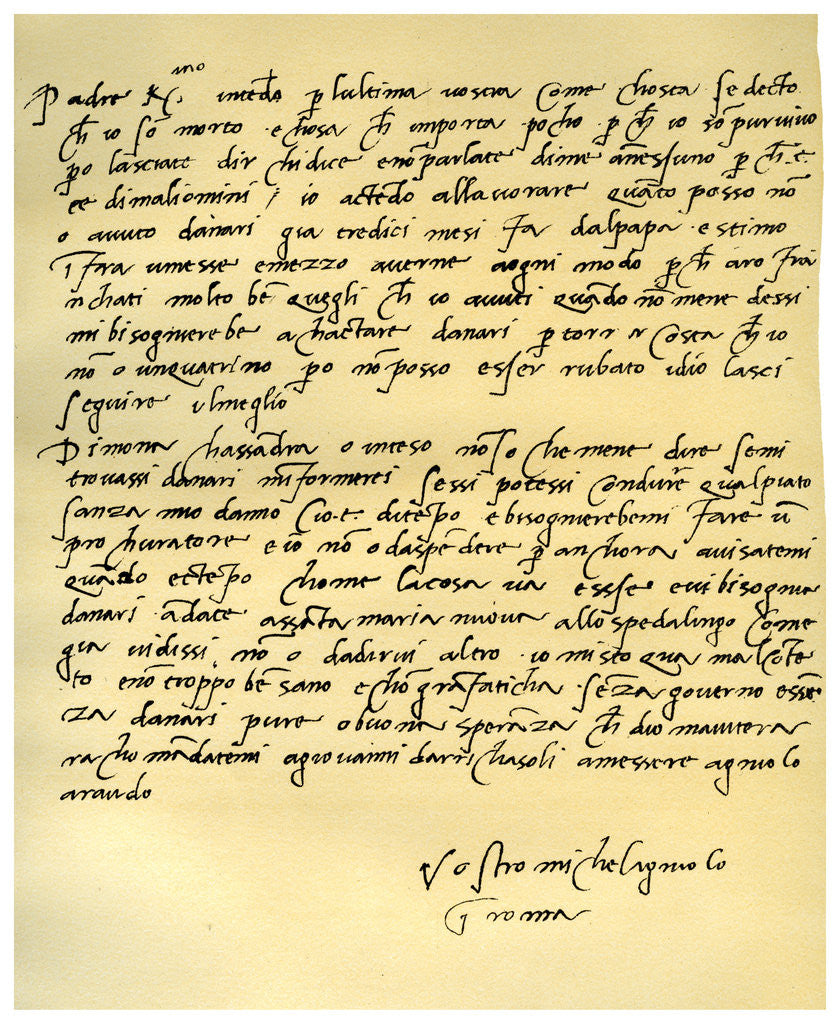 Padre K.mo intedo p lultima vostra Come chosta se decto
ch io so morto e chosa ch importa pocho p ch io so pur vivo
po lasciate dir chi dice e no parlate di me a nessuno p ch e
ce di mali omini / io actedo a llavorare quato posso no
o avuto danari gia tredici mesi fa dal papa e stimo
i fra u messe e mezzo averne a ogni modo p ch aro fra
nchati molto be quegli ch io avuti quado no me ne dessi
mi bisogniere be achactare danari p torr Costa ch io
no o un quatrino po no posso esser rubato idio lasci
seguire il meglio
Di mona chassadra o inteso no so che me ne dire se mi
trovassi danari minformerei sessi potessi Condure qua l piato
sanza mio danno Cio e di tepo e bisognierebemi fare u
prochuratore e io no o da spedere p anchora avisatemi
quado e tepo chome la cosa va e sse e vi bisognia
danari adate a ssata maria nuova allo spedalingo Come
gia vi dissi no o da dirvi altro io mi sto qua mal Cote
to e no troppo be sano e cho gra faticha seza governo e sse
za danari pure o buona speraza ch dio maiutera
rachomadatemi a giovanni da rrichasoli a messere agniolo
araudo
Vostro michelagniolo
i roma